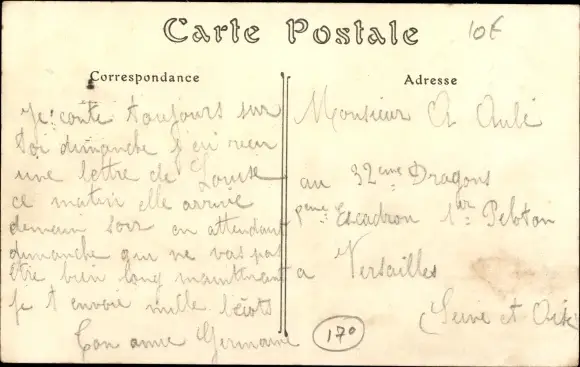 Carte Postale
10€
Correspondance
Je conte toujours sur
toi dimanche j ai recu
une lettre de Louise
ce matin elle arrive
demain soir en attendant
dimanche qui ne vas pas
être bien long maintenant
je t envoie mille bécots
Ton amie Germaine
Adresse
Monsieur A Aubé
au 32eme Dragons
eme Escadron 1er Peloton
a Versailles
(Seine et Oise
170